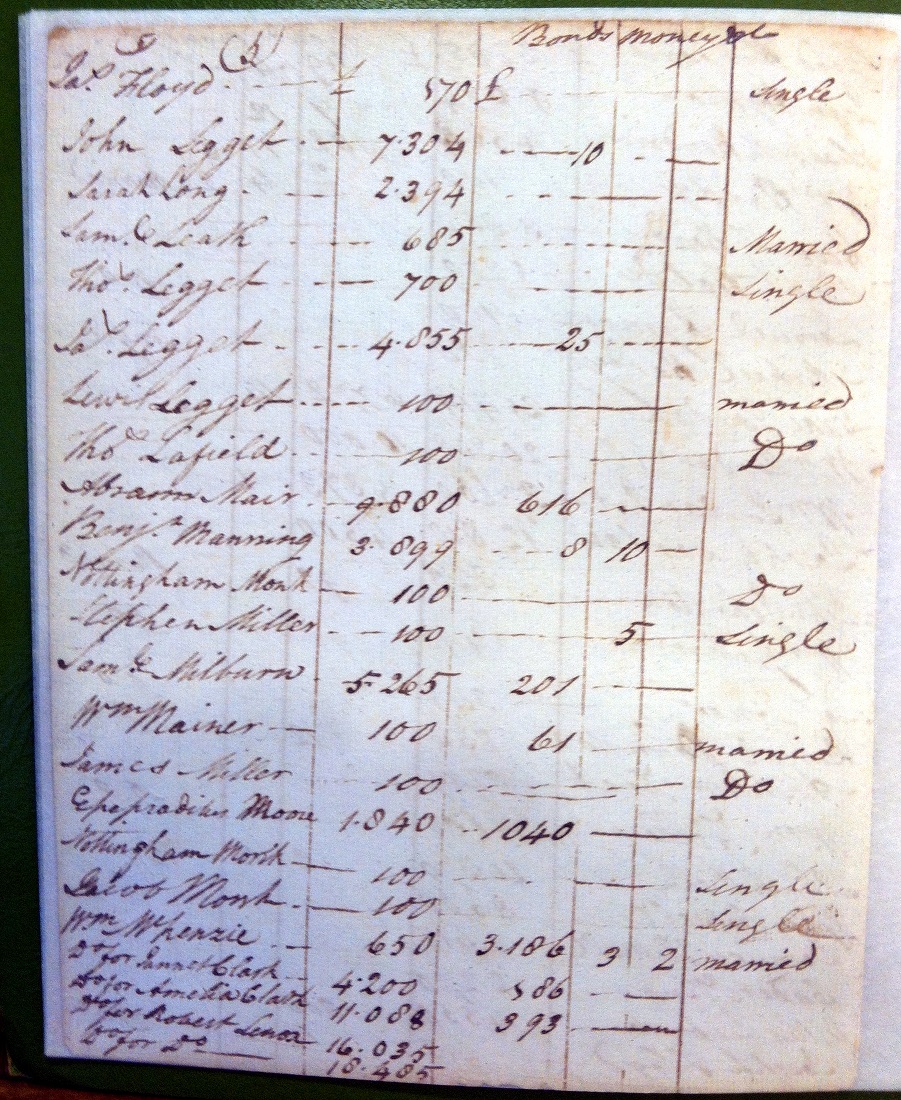 (3) Bonds money &ct
Jas. Floyd £ 570 £ Single
John Legget 7.304 10
Sarah Long 2.394
Saml. Leath 685 Married
Thos. Legget 700 Single
Jas. Legget 4.855 25
Lewis Legget 100 married
Thos. Lafield 100 Do
Abram Mair 9.880 616
Benjn. Manning 3.899 8 10
Nottingham Monk 100 Do
Stephen Miller 100 5 Single
Saml. Milburn 5.265 201
Wm Mainer 100 61 married
James Miller 100 Do
Epepraditus Moore 1.840 1040
Nottingham Monk 100 Single
Jacob Monk 100 Single
Wm McKenzie 650 3.186 3 2 married
Do for Jannet Clark 4.200 586
Do for Amelia Clark 11.088 393
Do for Robert Lenox 16.035
Do for Do 18.485